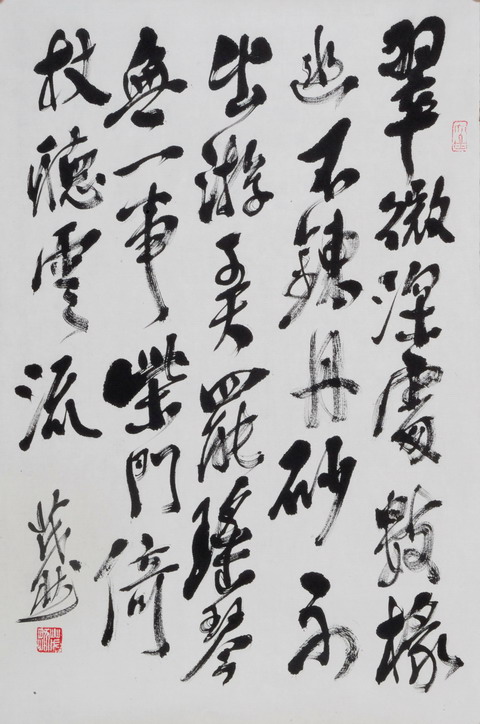 翠微深處數椽
幽不鍊丹砂不
出游奏罷瑤琴
無一事柴門倚
杖聽雲流